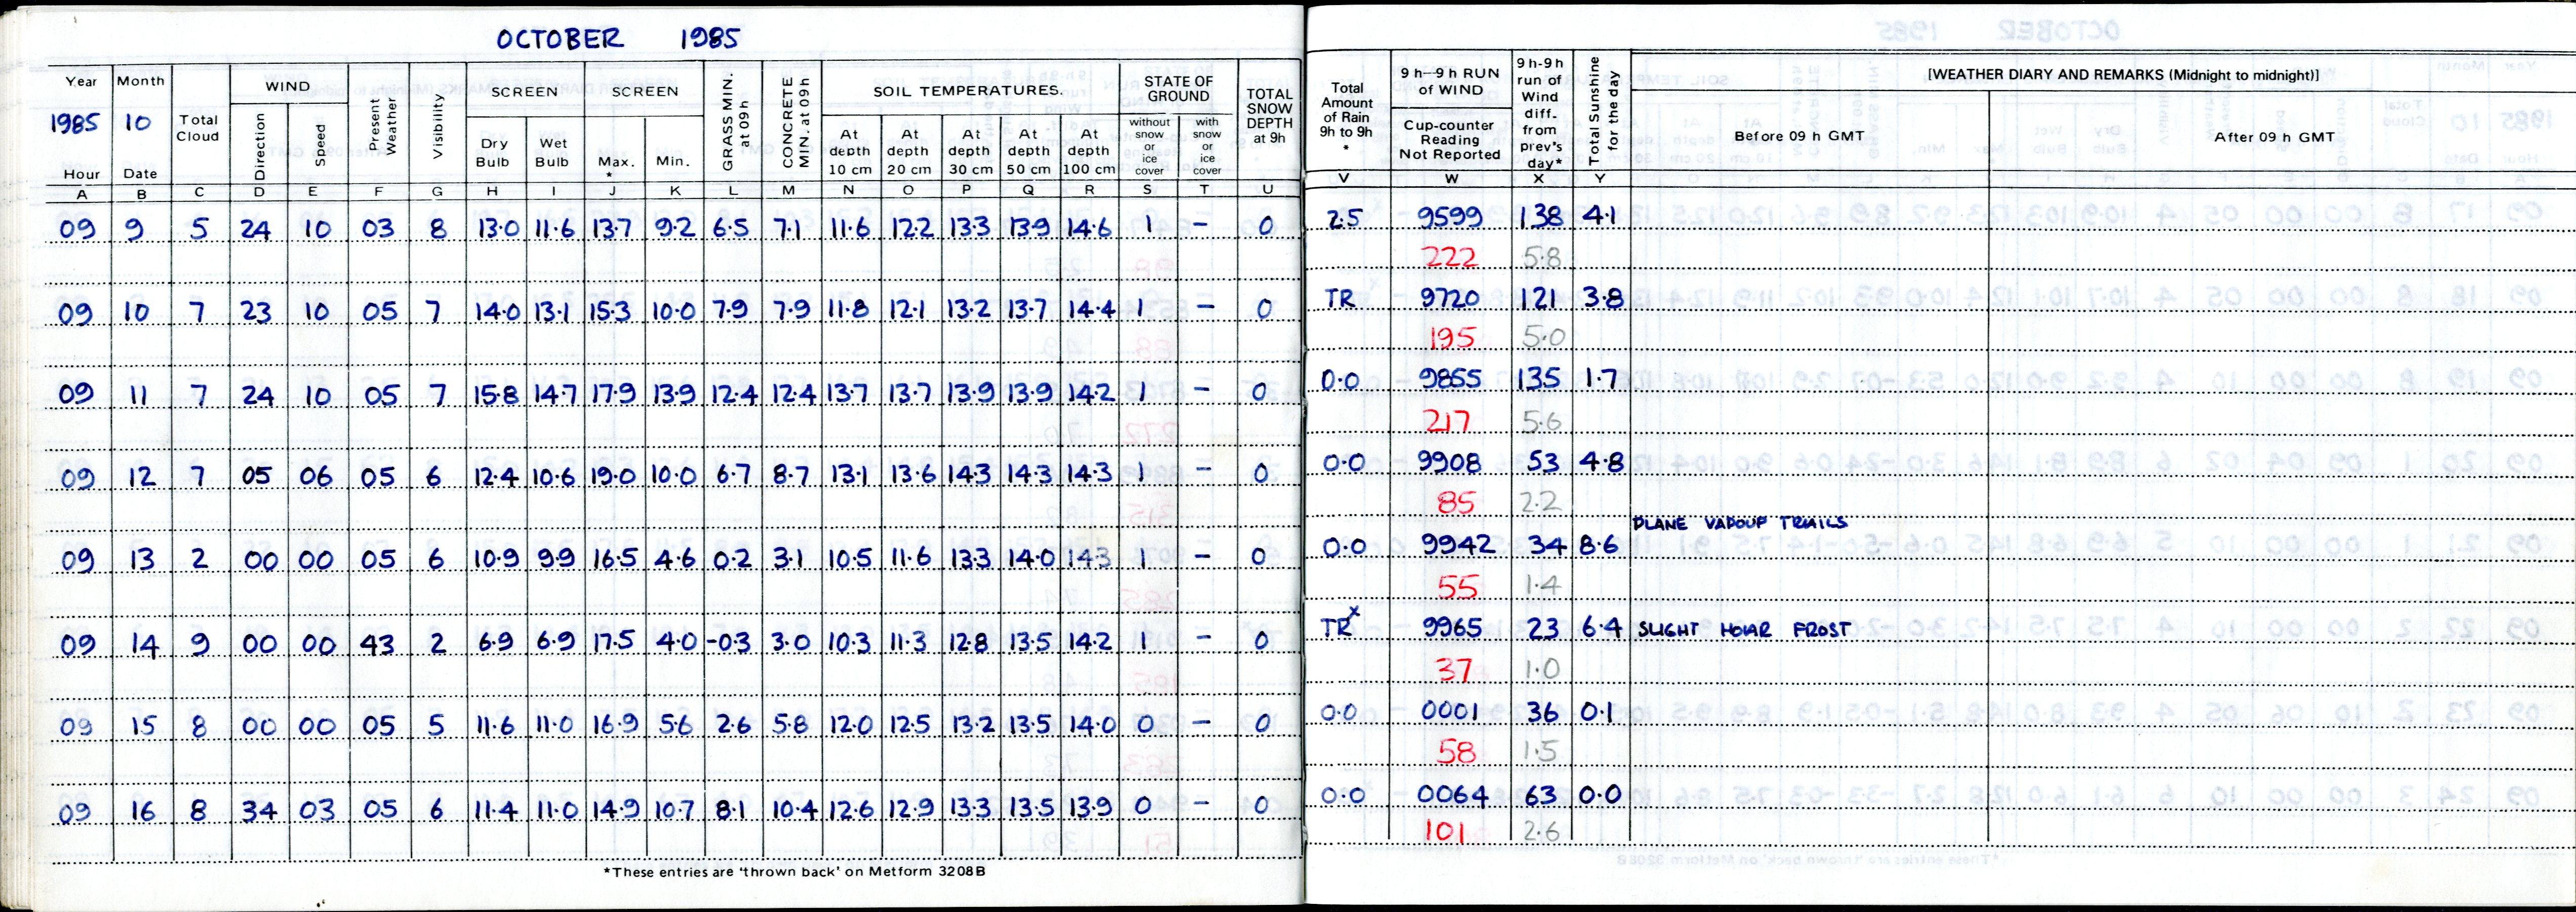 OCTOBER 1985
Year Month Total Cloud WIND Present Weather Visibility SCREEN SCREEN GRASS MIN. at 09h CONCRETE MIN. at 09h SOIL TEMPERATURES. STATE OF GROUND TOTAL SNOW DEPTH at 9h
1985 10 Direction Speed Dry Bulb Wet Bulb Max. * Min. At depth 10 cm At depth 20 cm At depth 30 cm At depth 50 cm At depth 100 cm without snow or ice cover with snow or ice cover
Hour Date
A B C D E F G H I J K L M N O P Q R S T U
09 9 5 24 10 03 8 13.0 11.6 13.7 9.2 6.5 7.1 11.6 12.2 13.3 13.9 14.6 1 – 0
09 10 7 23 10 05 7 14.0 13.1 15.3 10.0 7.9 7.9 11.8 12.1 13.2 13.7 14.4 1 – 0
09 11 7 24 10 05 7 15.8 14.7 17.9 13.9 12.4 12.4 13.7 13.7 13.9 13.9 14.2 1 – 0
09 12 7 05 06 05 6 12.4 10.6 19.0 10.0 6.7 8.7 13.1 13.6 14.3 14.3 14.3 1 – 0
09 13 2 00 00 05 6 10.9 9.9 16.5 4.6 0.2 3.1 10.5 11.6 13.3 14.0 14.3 1 – 0
09 14 9 00 00 43 2 6.9 6.9 17.5 4.0 -0.3 3.0 10.3 11.3 12.8 13.5 14.2 1 – 0
09 15 8 00 00 05 5 11.6 11.0 16.9 5.6 2.6 5.8 12.0 12.5 13.2 13.5 14.0 0 – 0
09 16 8 34 03 05 6 11.4 11.0 14.9 10.7 8.1 10.4 12.6 12.9 13.3 13.5 13.9 0 – 0
*These entries are 'thrown back' on Metform 3208B
Total Amount of Rain 9h to 9h * 9 h—9 h RUN of WIND 9h-9h run of Wind diff. from prev's day* Total Sunshine for the day [WEATHER DIARY AND REMARKS (Midnight to midnight)]
Cup-counter Reading Not Reported Before 09 h GMT After 09 h GMT
V W X Y
2.5 9599 138 4.1
222 5.8
TR x 9720 121 3.8
195 5.0
0.0 9855 135 1.7
217 5.6
0.0 9908 53 4.8
85 2.2
PLANE VAPOUR TRAILS
0.0 9942 34 8.6
55 1.4
TR x 9965 23 6.4 SLIGHT HOAR FROST
37 1.0
0.0 0001 36 0.1
58 1.5
0.0 0064 63 0.0
101 2.6